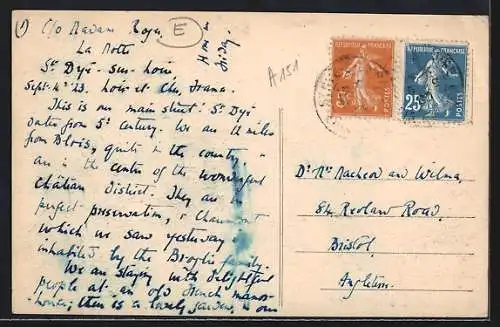 1) c/o Madam Roger
La Motte
St Dyé-sur-Loire
Sept. 4th 23. Loir-et-Cher, France.
This is our main street! St Dyé
dates from 5th Century. We are 12 miles
from Blois, quite in the country &
are in the centre of the wonderful
Château District. They are in
perfect preservation, & Chaumont
which we saw yesterday is
inhabited by the Broglie family.
We are staying with delightful
people at an old French manor-
house; there is a lovely garden, & our
E
A 151
REPUBLIQUE FRANÇAISE
POSTES
REPUBLIQUE FRANÇAISE
25c
POSTES
Dr. Mrs Macleod and Wilma,
Redland Road,
Bristol,
Angleterre.